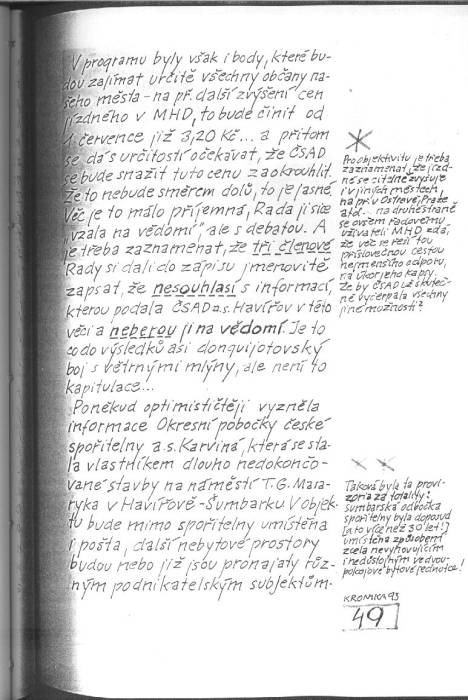 V programu byly však i body, které bu-
dou zajímat určitě všechny občany na-
šeho města - na př. další zvýšení cen
jízdného v MHD, to bude činit od
1. července již 3,20 Kč... a přitom
se dá s určitostí očekávat, že ČSAD
se bude snažit tuto cenu zaokrouhlit.
Že to nebude směrem dolů, to je jasné.
Věc je to málo příjemná, Rada ji sice
"vzala na vědomí", ale s debatou. A
je třeba zaznamenat, že tři členové
Rady si dali do zápisu jmenovitě
zapsat, že nesouhlasí s informací,
kterou podala ČSAD a.s. Havířov v této
věci a neberou ji na vědomí. Je to
co do výsledků asi donquijotovský
boj s větrnými mlýny, ale není to
kapitulace...
Poněkud optimističtěji vyzněla
informace Okresní pobočky české
spořitelny a.s. Karviná, která se sta-
la vlastníkem dlouho nedokončo-
vané stavby na náměstí T.G. Masa-
ryka v Havířově-Šumbarku. V objek-
tu bude mimo spořitelny umístěna
i pošta, další nebytové prostory
budou nebo již jsou pronajaty růz-
ným podnikatelským subjektům.
Pro objektivitu je třeba
zaznamenat, že jízd-
né se citelně zvyšuje
i v jiných městech,
na př. v Ostravě, Praze
atd... na druhé straně
se ovšem řadovému
uživateli MHD zdá,
že věc se řeší tou
příslovečnou cestou
nejmenšího odporu,
na úkor jeho kapsy.
Že by ČSAD už skuteč-
ně vyčerpala všechny
jiné možnosti?
Taková byla ta provi-
zoria za totality:
šumbarská odbočka
spořitelny byla doposud
(a to více než 30 let!)
umístěna způsobem
zcela nevyhovujícím
i nedůstojným ve dvou-
pokojové bytové jednotce!
KRONIKA 93
49